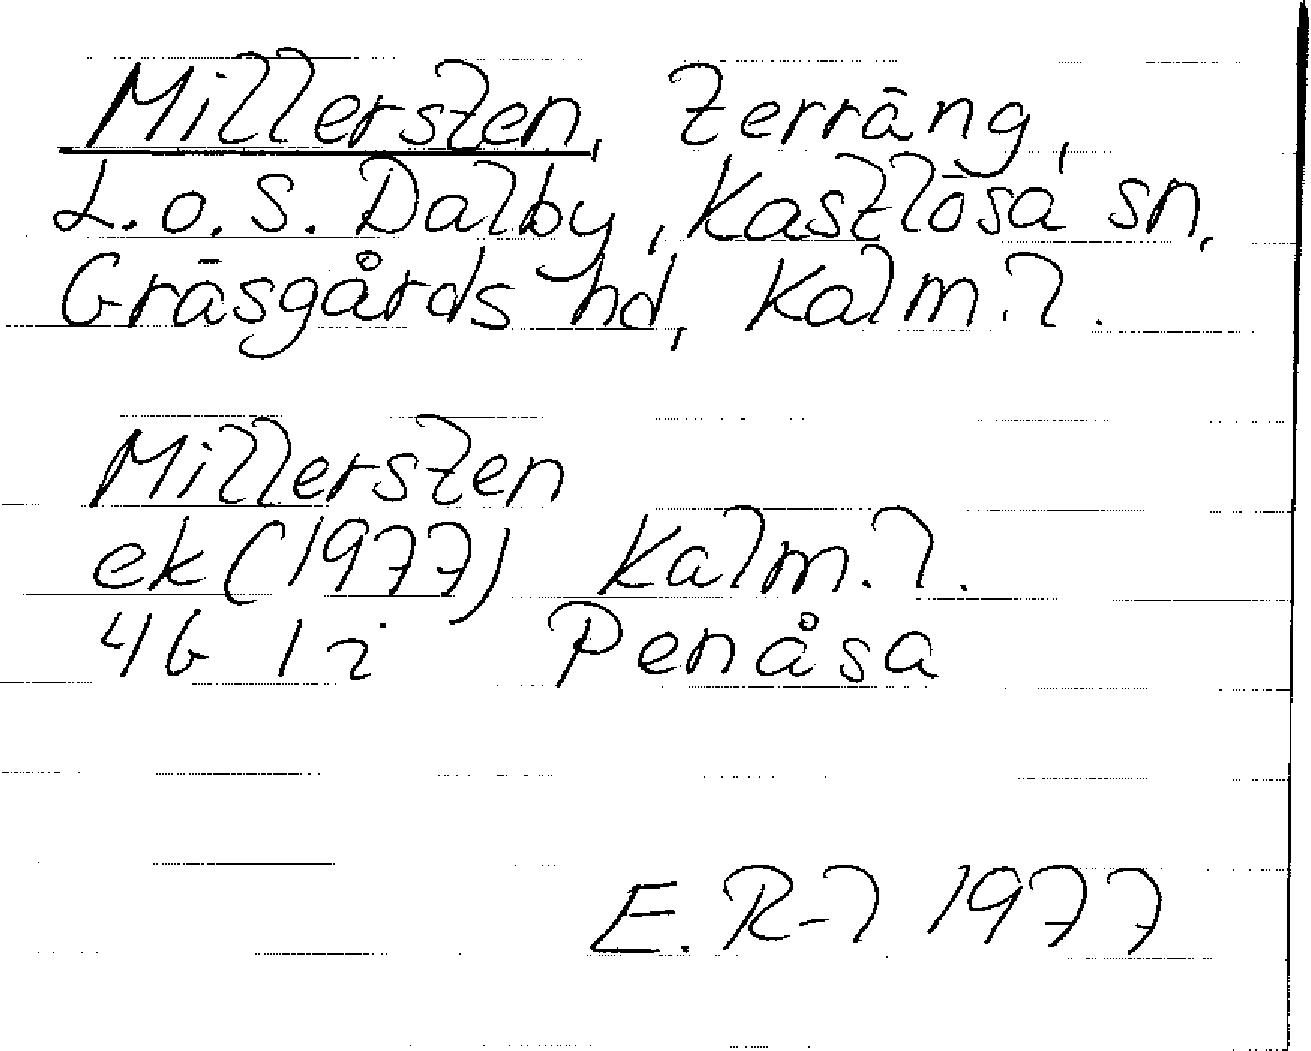 Millersten, terräng,
L.o.S. Dalby, Kastlösa sn,
Gräsgårds hd, Kalm. l.
Millersten
ek (1977) Kalm. l.
4G 1i Penåsa
E. R-l 1977